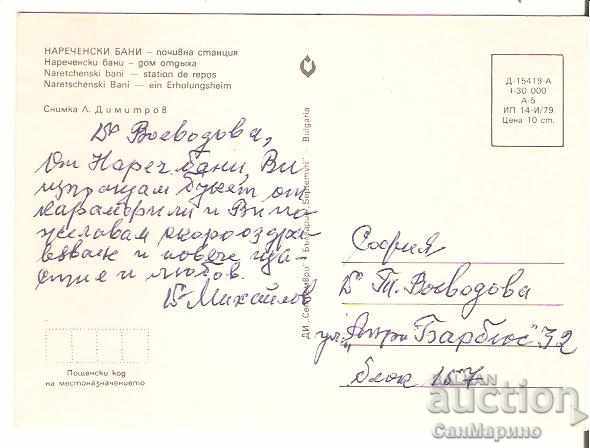 НАРЕЧЕНСКИ БАНИ – почивна станция
Нареченски бани – дом отдыха
Naretchenski bani – station de repos
Naretschenski Bani – ein Erholungsheim
Снимка Л. Димитров
Д-р Воеводова,
От Нареч. бани, Ви
изпращам букет от
карамфили и Ви по-
желавам скороо оздра-
вяване и повече ща-
стие и любов.
Д-р Михайлов
Пощенски код
на местоназначението
ДИ „Септември" България „Българска" Bulgaria
Д-15419-А
I-30 000
А-6
ИП 14-II/79
Цена 10 ст.
София
Д-р Т. Воеводова
ул. „Анри Барбюс" 32
блок 157
BALKAN
auction
СанМарино